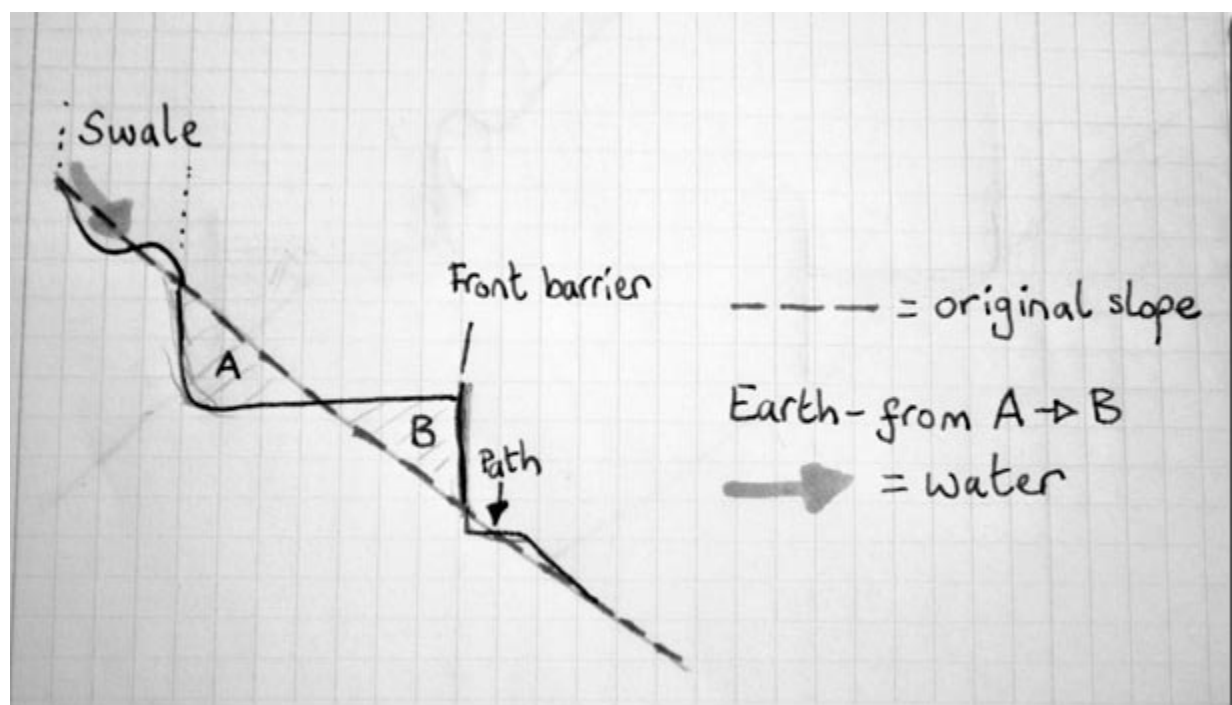 Swale
Front barrier
A
B
Path
= original slope
Earth - from A → B
= water